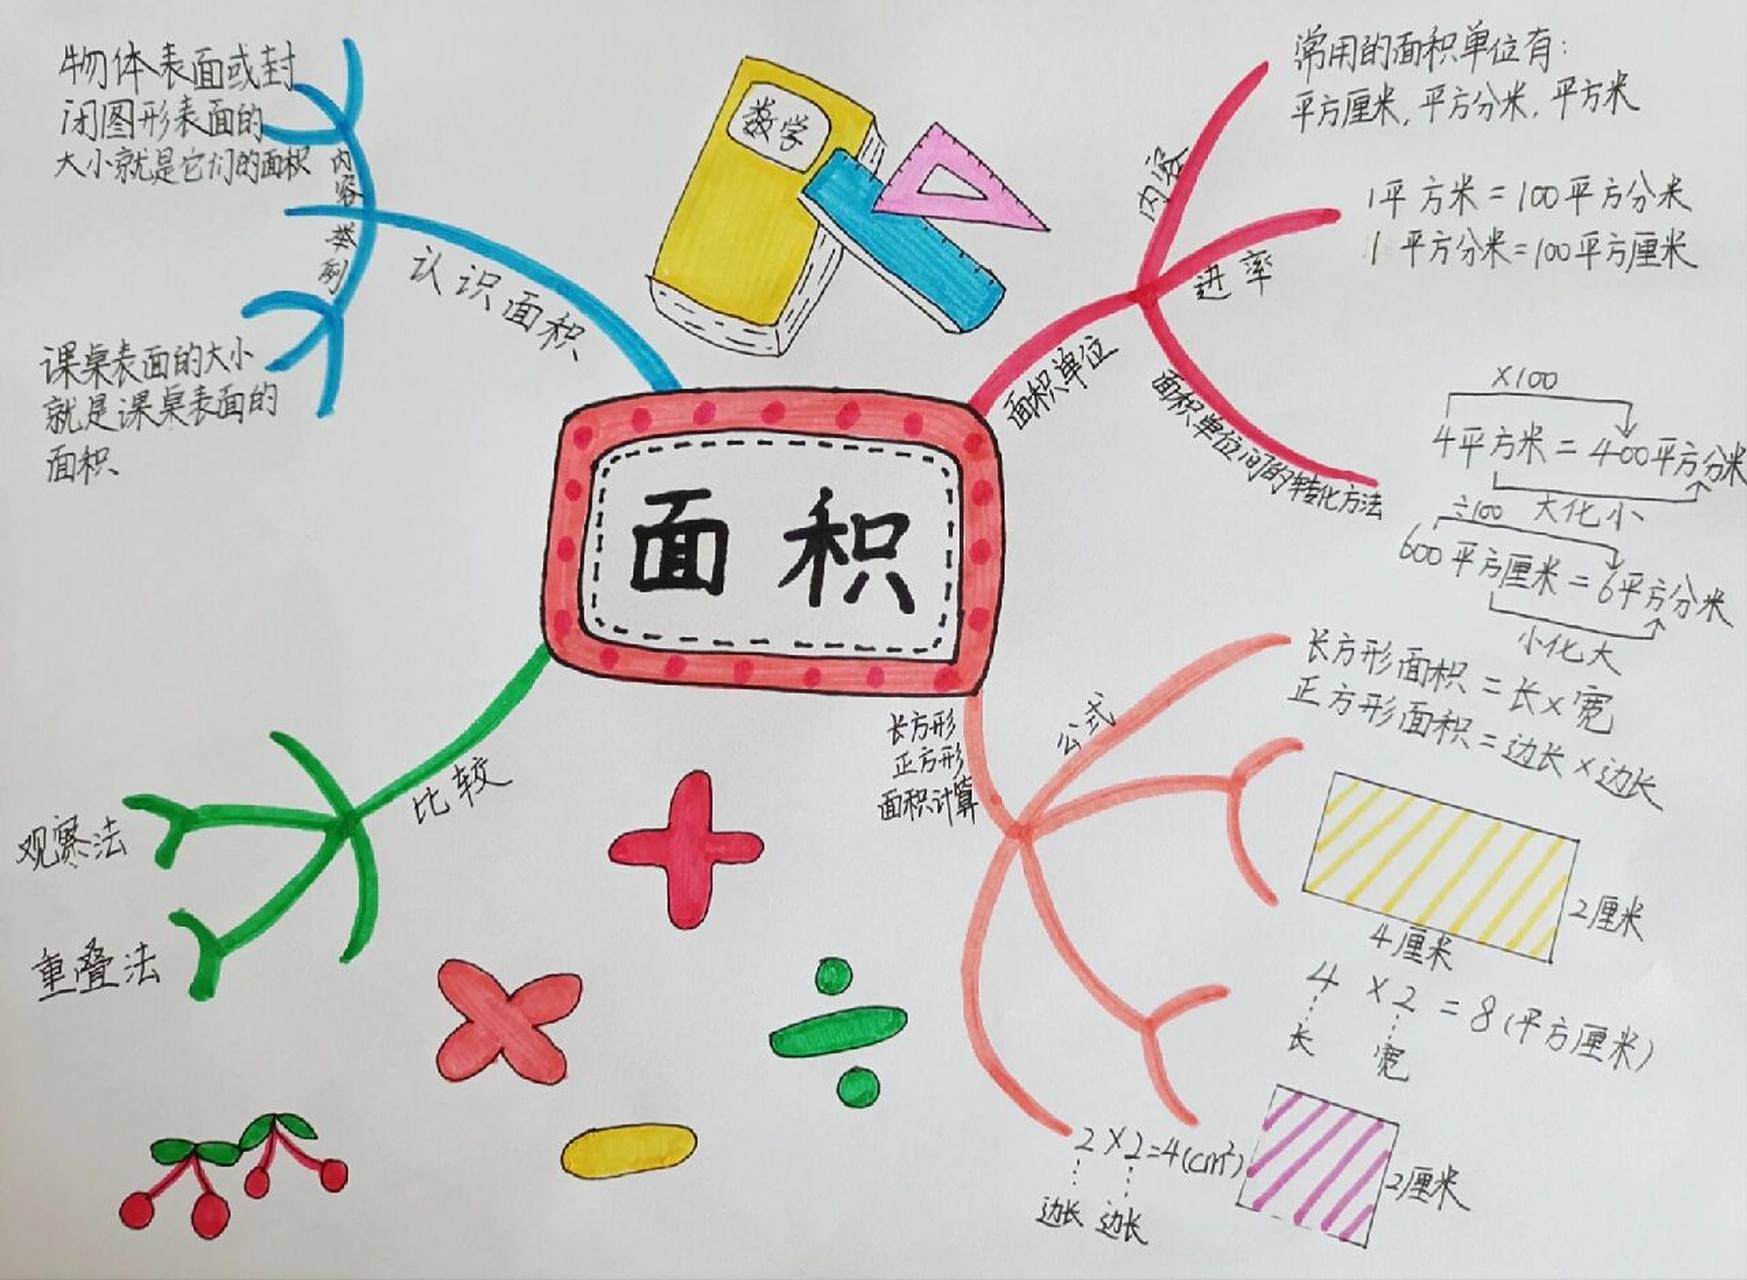 物体表面或封
闭图形表面的
大小就是它们的面积
内容
举例
认识面积
课桌表面的大小
就是课桌表面的
面积、
数学
面积
常用的面积单位有：
平方厘米，平方分米，平方米
内容
1平方米=100平方分米
1平方分米=100平方厘米
进率
面积单位
面积单位间的转化方法
×100
4平方米=400平方分米
大化小
÷100
600平方厘米=6平方分米
小化大
比较
观察法
重叠法
长方形
正方形
面积计算
公式
长方形面积=长×宽
正方形面积=边长×边长
2厘米
4厘米
4×2=8(平方厘米)
长 宽
2×2=4(cm²)
边长 边长
2厘米